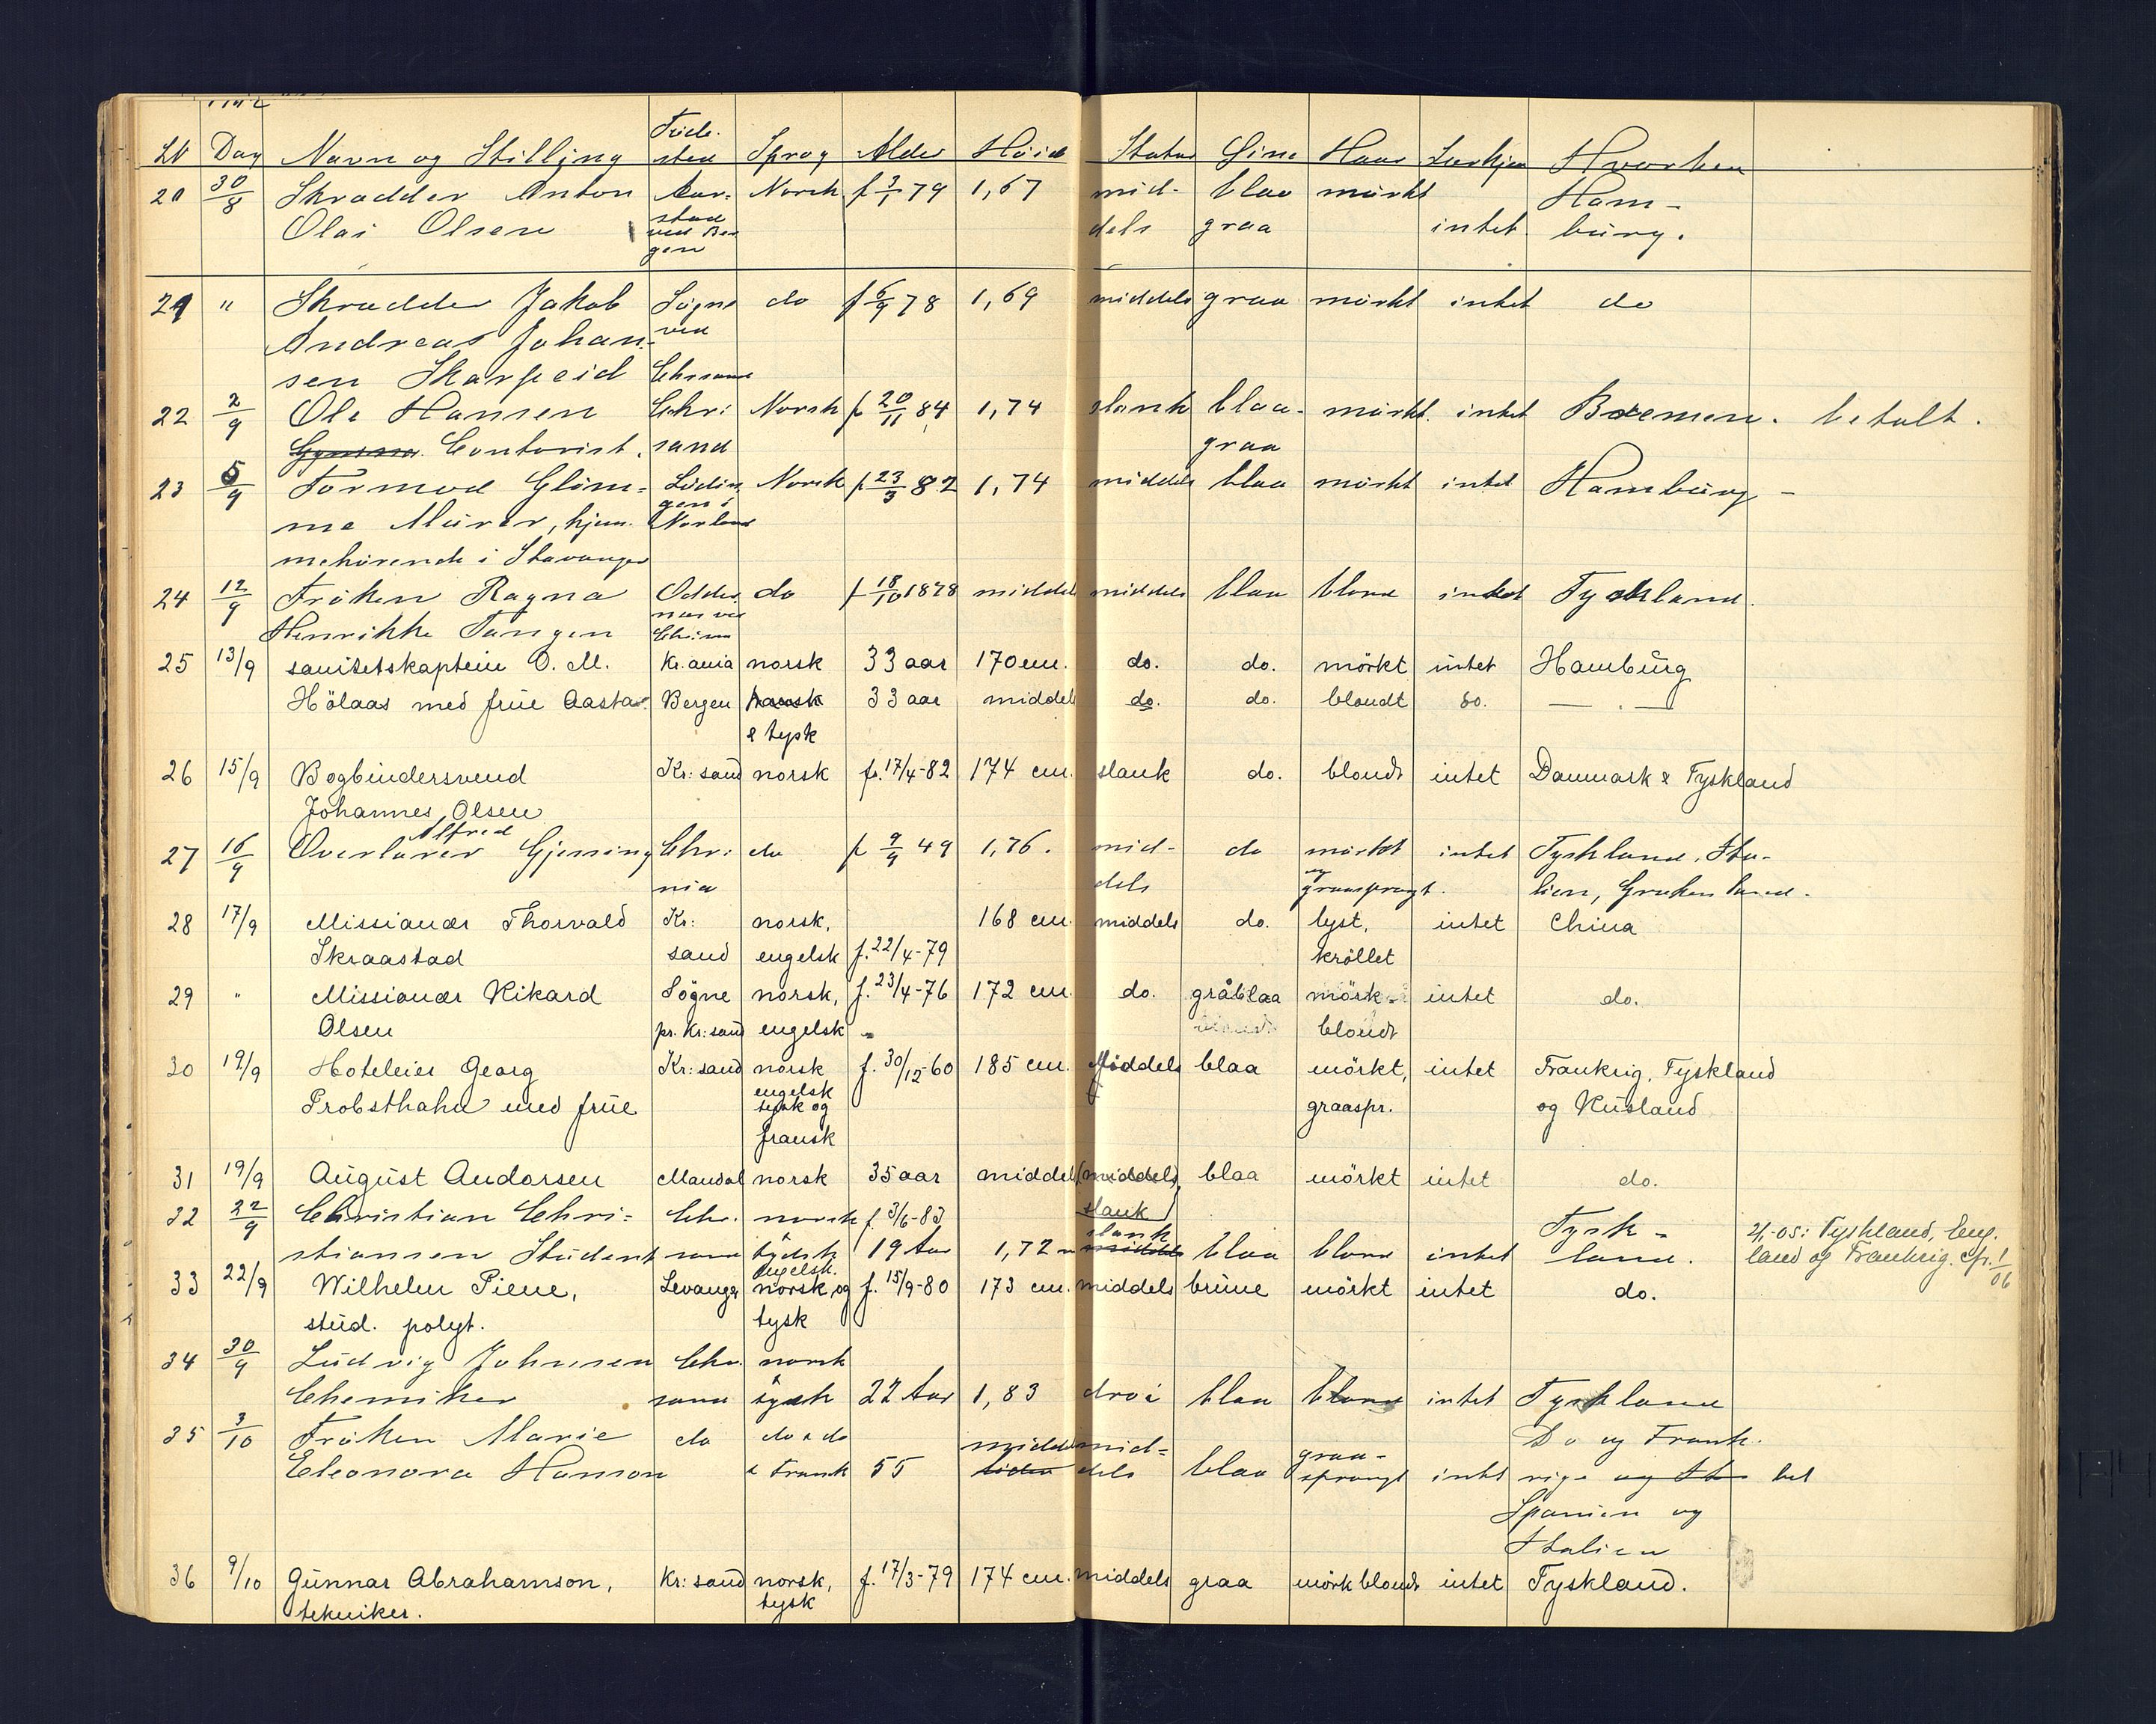 LN Dag Navn og Stilling Föde- sted Sprog Alder Höide Statur Öine Haar Særkjen Hvorhen
20 30/8 Skrædder Anton Aar- Norsk f 3/1 79 1,67 mid- blaa mörkt Ham-
Olai Olsen stad ved Ber dels graa intet burg.
gen
21 " Skrædder Jakob Sögne do f 6/9 78 1,69 middels graa mörkt intet do
Andreas Johan- ved
sen Skarpeid Chrsand
22 2/9 Ole Hansen Chri: Norsk f 20/11 84 1,74 slank blaa- mörkt. intet Bremen. betalt.
Contorist. sand graa
23 5/9 Tormod Glöm- Lödin Norsk f 23/3 82 1,74 middels blaa mörkt intet Hamburg -
me Murer, hjem- gen i Norland
mehörende i Stavanger
24 12/9 Fröken Ragna Odder do f 18/10 1878 middel middels blaa blond intet Tyskland.
Henrikke Tangen næs ved Chr.sn
25 13/9 sanitetskaptein O. M. Kr.ania norsk 33 aar 170 cm. do. do. mörkt intet Hamburg
Hölaas med frue Aasta. Bergen norsk 33 aar middel do. do. blondt do. — . —
& tysk
26 15/9 Bogbindersvend Kr: sand norsk f. 17/4-82 174 cm. slank do. blondt intet Danmark & Tyskland
Johannes Olsen
Alfred
27 16/9 Overlærer Gjessing Chr: do f 9/9 49 1,76. mid- do mörkt intet Tyskland, Ita-
nia dels og graasprængt. lien, Grækenland.
28 17/9 Missionær Thorvald Kr: norsk, 168 cm. middels do. lyst, intet China
Skraastad sand engelsk f. 22/4-79 kröllet
29 " Missionær Rikard Sögne norsk, f. 23/4-76 172 cm. do. gråblaa mörk- intet do.
Olsen pr. Kr: sand engelsk blondt
30 19/9 Hoteleier Georg Kr: sand norsk f. 30/12-60 185 cm. Middels blaa mörkt, intet Frankrig, Tyskland
Probsthahn med frue engelsk tysk og graaspr. og Rusland
fransk
31 19/9 August Andorsen Mandal norsk 35 aar middel (middels) blaa mörkt intet do.
slank
32 22/9 Christian Chri- Chr. norsk f. 3/6-83 slank Tysk- 2/1-05: Tyskland, Eng-
stiansen Student sand tydsk 19 Aar 1,72 m middels blaa blond intet land. land og Frankrig. cfr. 1/06
engelsk.
33 22/9 Wilhelm Piene, Levanger norsk og f. 15/9-80 173 cm. middels brune mörkt intet do.
stud. polyt. tysk
34 30/9 Ludvig Johnsen Chr. norsk
Chemiker sand tysk 22 Aar 1,83 dröi blaa blond intet Tyskland
35 3/10 Fröken Marie do do & do middel mid- graa- Do og Frank-
Eleonora Hanson & Frank 55 liden dels blaa sprængt intet rige og It bet
Spanien og
Italien
36 9/10 Gunnar Abrahamson, Kr: sand norsk, f. 17/3-79 174 cm. middels graa mörkblondt intet Tyskland.
tekniker. tysk